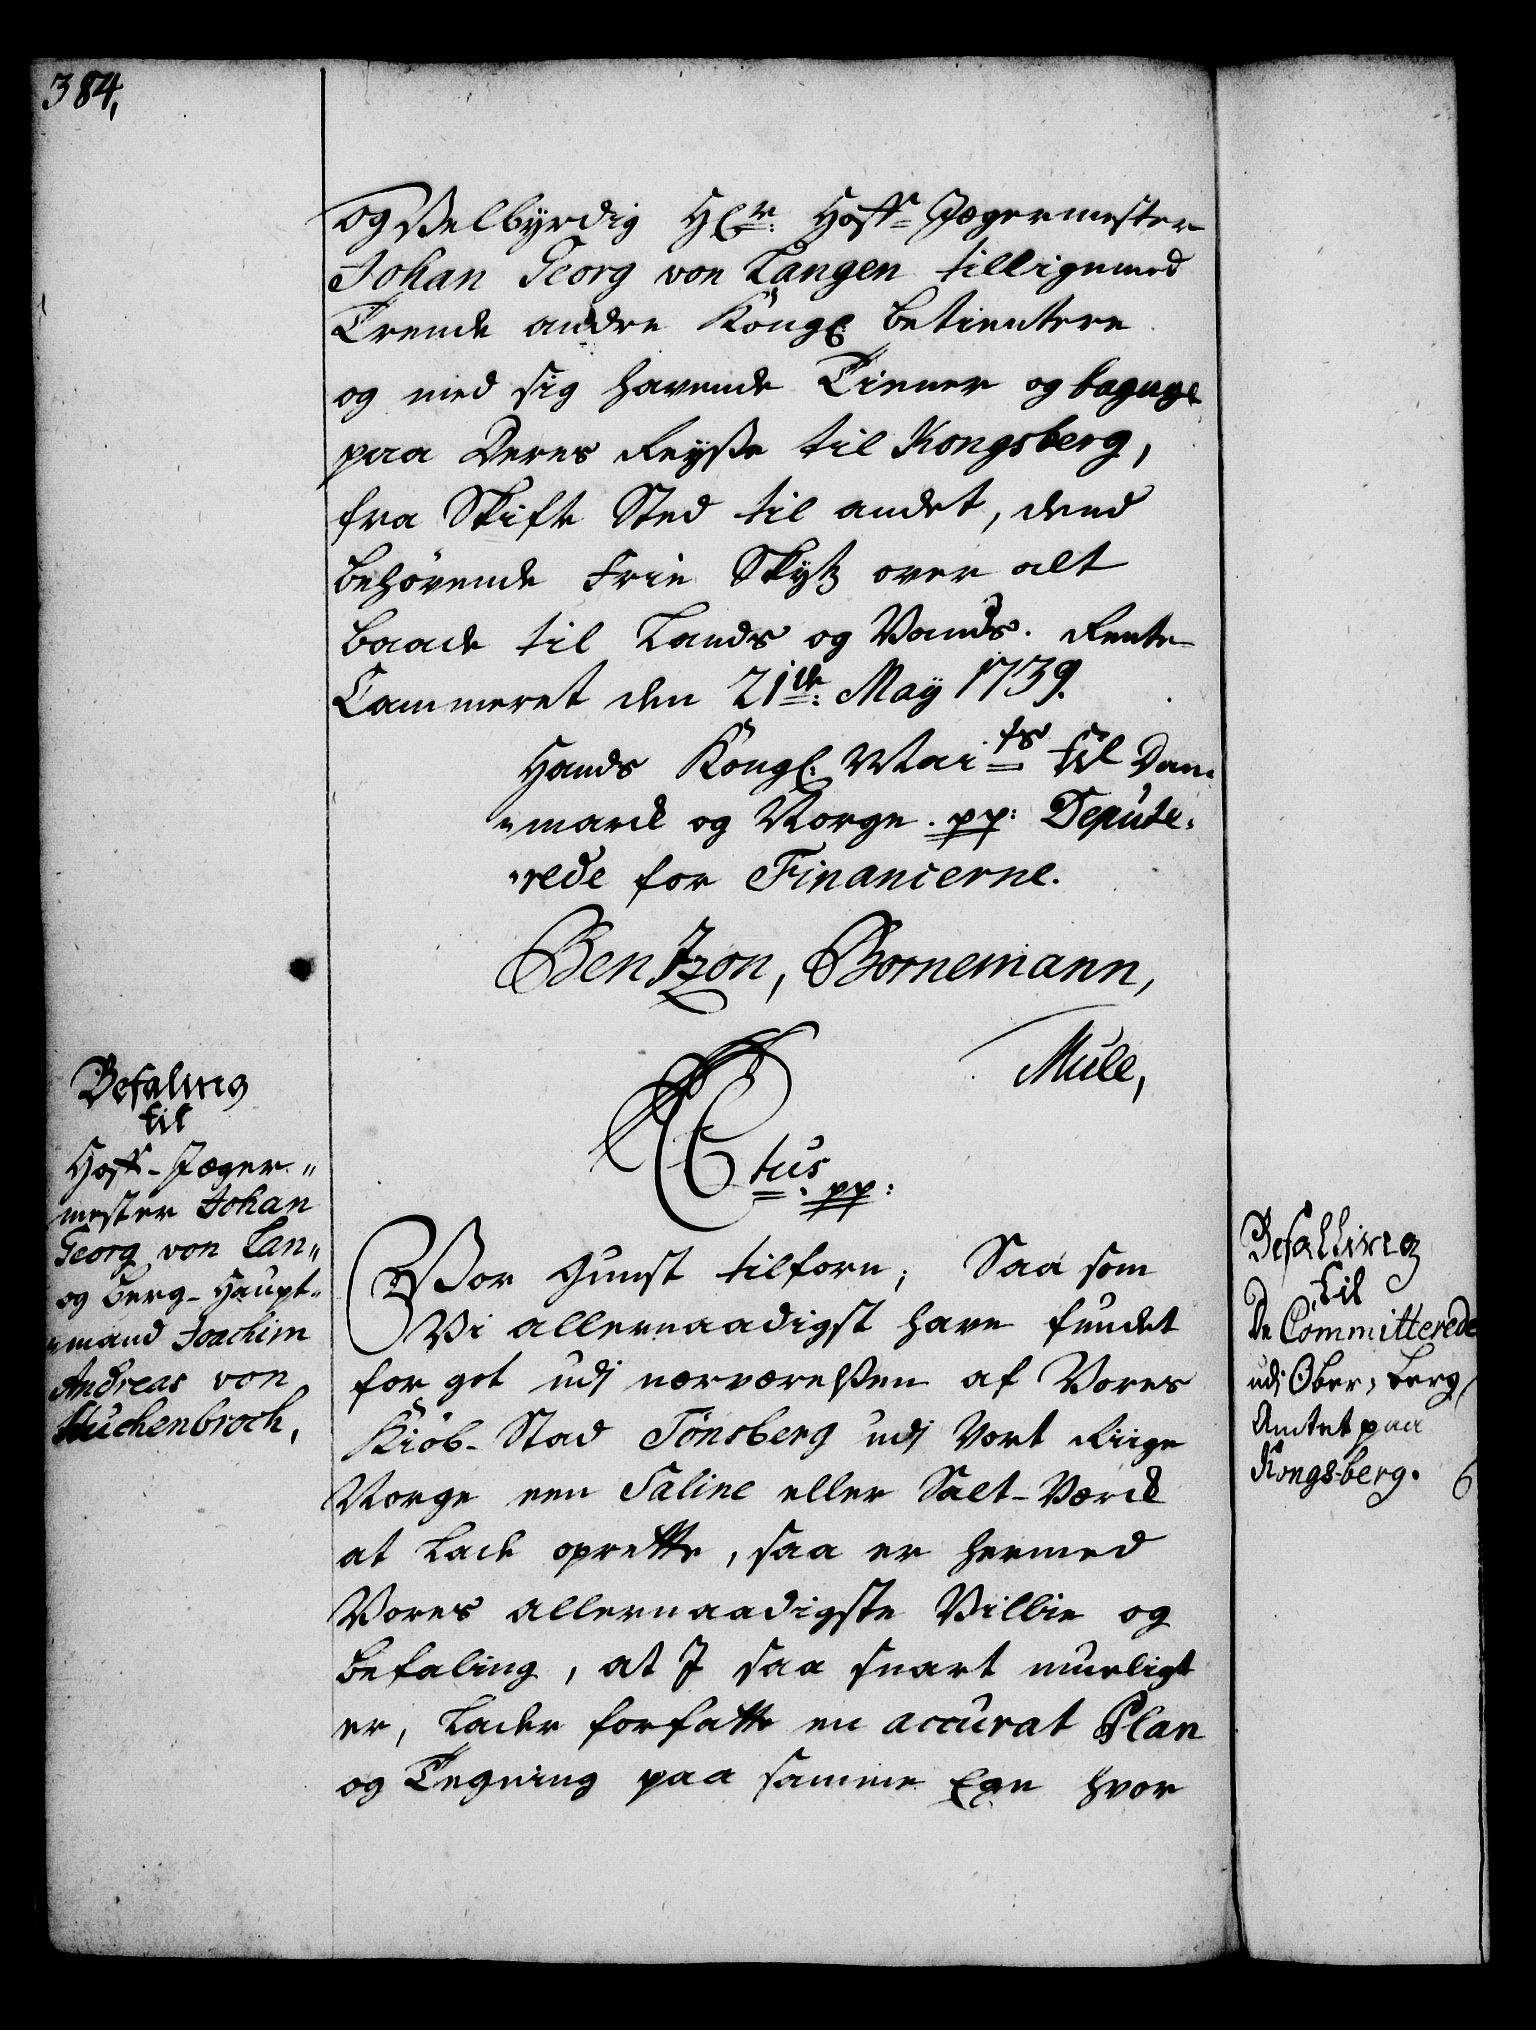 384,
og Velbyrdig Hr: Hoff-Jægermester
Johan Georg von Langen tilligemed
Trende andre Kongl: betientere
og med sig havende Tiener og bagage
paa Deres Reyße til Kongsberg,
fra Skifte Sted til andet, dend
behövende Frie Skytz over alt
baade til Lands og Vands. Rente-
Cammeret den 21de: May 1739.
Hands Kongl: Mai:ts til Dan-
-marck og Norge. pp: Depute-
-rede for Financerne.
Bentzon, Bornemann,
Mule,
C6tus. pp:
Befaling
til
Hoff-Jæger-
mester Johan
Georg von Lan-
og Berg-Haupt-
-mand Joachim
Andreas von
Stuchenbroch,
Vor Gunst tilforn; Saa som
Vi allernaadigst have fundet
for got udj nærværelßen af Vores
Kiöb-Stad Tönsberg udj Vort Riige
Norge een Saline eller Salt-Værck
at lade oprette, saa er hermed
Vores allernaadigste Villie og
befaling, at I saa snart mueligt
er, lader forfatte en accurat Plan
og Tegning paa samme Egn hvor
Befalling
til
De Committerede
udj Ober-Berg-
Amtet paa
Kongsberg.